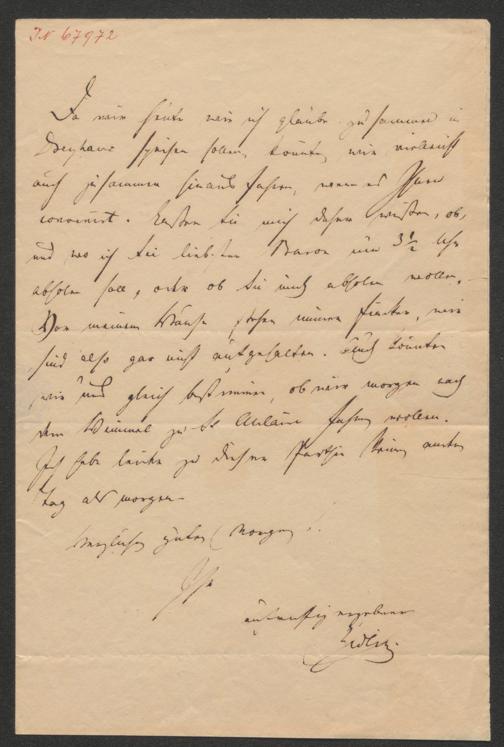 IN 67972
Da wir heute wie ich glaube zusammen in
speisen sollen, könnten wir vielleicht
auch zusammen hinaus fahren, wenn es Ihnen
convenirt. Lassen Sie mich daher wissen, ob,
und wo ich Sie liebster Baron um 3 1/2 Uhr
abholen soll, oder ob Sie mich abholen wollen.
Vor meinem Hause stehen immer Fiaker, wir
sind also gar nicht aufgehalten. Auch könnten
wir und gleich bestimmen, ob wir morgen nach
dem zu fahren wollen.
Ich habe leider zu dieser Parthie keinen andern
Tag als morgen.
Herzlichen guten Morgen!
Ihr
aufrichtig ergebener